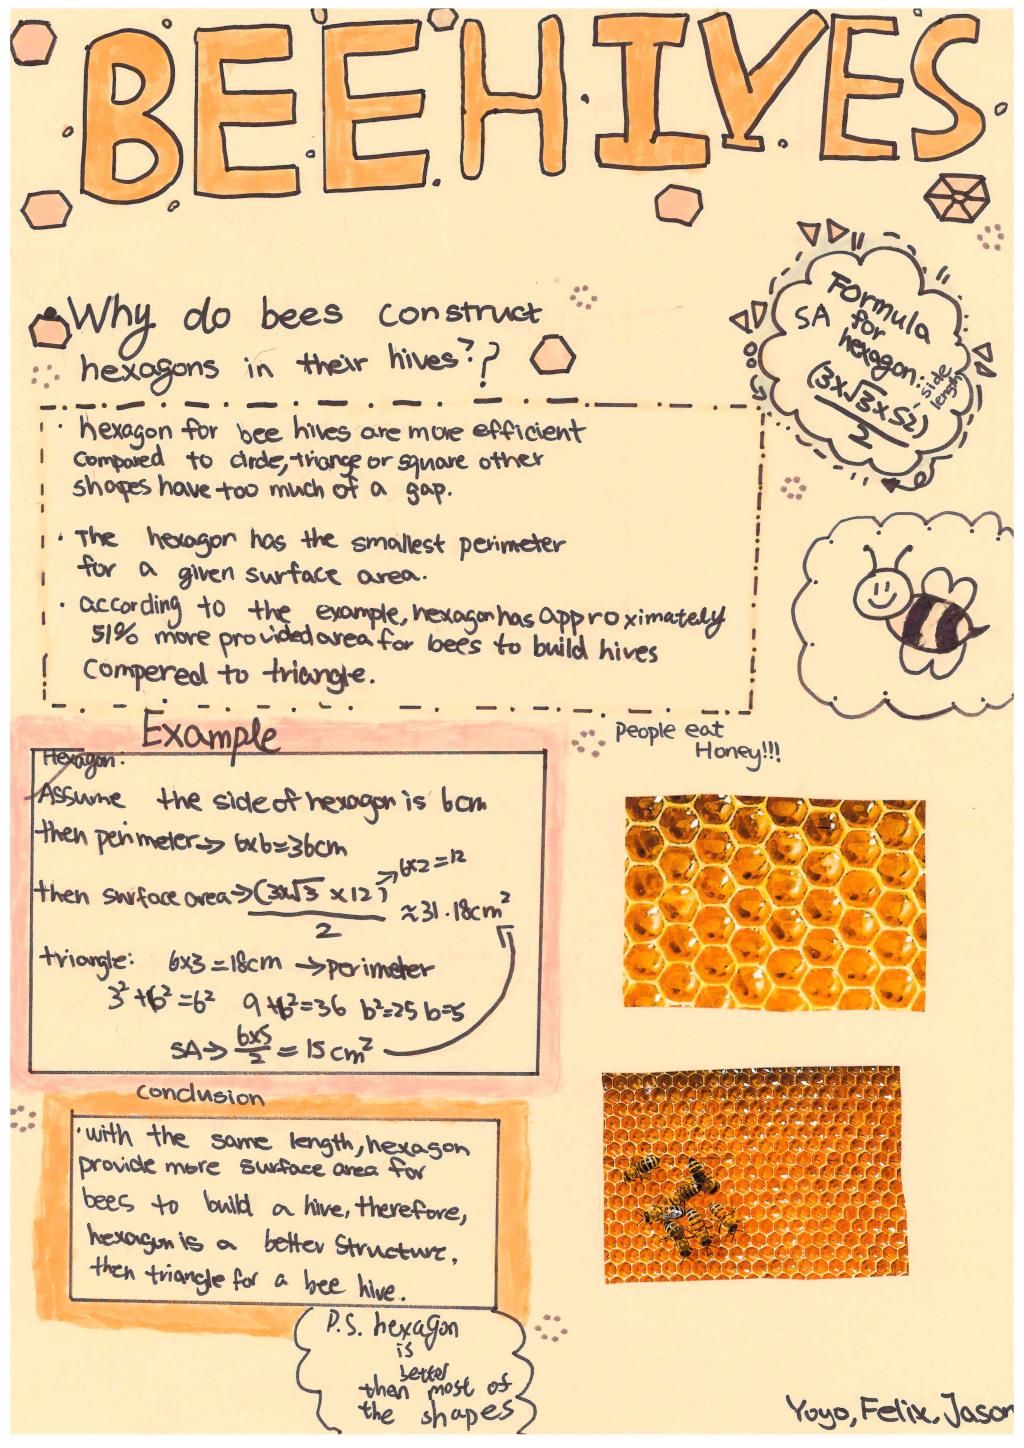 BEEHIVES
Why do bees construct
hexagons in their hives??
Formula
SA for
hexagon:
side
length
(3x√3xS²)
2
· hexagon for bee hives are more efficient
compared to circle, triange or square other
shapes have too much of a gap.
· The hexagon has the smallest perimeter
for a given surface area.
· according to the example, hexagon has approximately
51% more provided area for bees to build hives
compered to triangle.
People eat
Honey!!!
Example
Hexagon:
Assume the side of hexagon is 6cm
then perimeter→ 6x6=36cm
6x2=12
then surface area→ (3x√3 x 12) ≈31.18cm²
2
triangle: 6x3=18cm →perimeter
3²+b²=6² 9+b²=36 b²=25 b=5
SA→ 6x5 = 15cm²
2
conclusion
·with the same length, hexagon
provide more surface area for
bees to build a hive, therefore,
hexagon is a better structure.
then triangle for a bee hive.
P.S. hexagon
is
better
then most of
the shapes
Yoyo, Felix, Jason